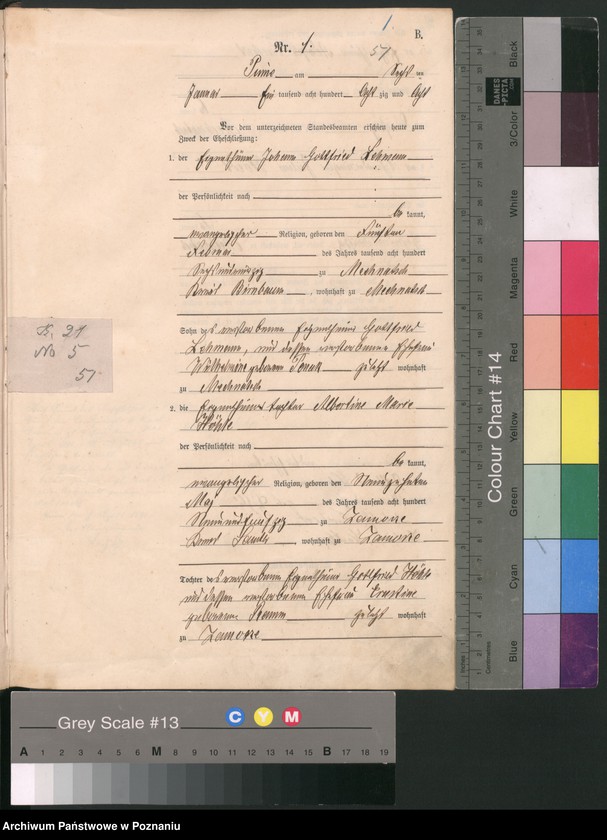 1
B.
Nr. 1.
51
Pinne am Sechs ten
Januar Ein tausend acht hundert Acht zig und Acht
Vor dem unterzeichneten Standesbeamten erschien heute zum
Zweck der Eheschließung:
1. der Eigenthümer Johann Gottfried Lehmann
der Persönlichkeit nach
be kannt,
evangelischer Religion, geboren den
Februar des Jahres tausend acht hundert
zu Mechnatsch
Kreis Birnbaum, wohnhaft zu Mechnatsch
Sohn des verstorbenen Eigenthümers Gottfried
Lehmann, und dessen verstorbenen Ehefrau
Wilhelmine geborene zuletzt wohnhaft
zu Mechnatsch
2. die Eigenthümertochter Albertine Marie
der Persönlichkeit nach
be kannt,
evangelischer Religion, geboren den Neunzehnten
Mai des Jahres tausend acht hundert
Neunundfünfzig zu Zamorze
Kreis Samter, wohnhaft zu Zamorze
Tochter des verstorbenen Eigenthümers Gottfried
und dessen verstorbenen Ehefrau Ernstine
geborene zuletzt wohnhaft
zu Zamorze
B. 21
No 5
51
Colour Chart #14
Blue
Cyan
Green
Yellow
Red
Magenta
White
3/Color
Black
DANES
-PICTA
.COM
Inches
Centimetres
Grey Scale #13
C Y M
A 1 2 3 4 5 6 M 8 9 10 11 12 13 14 15 B 17 18 19
Archiwum Państwowe w Poznaniu